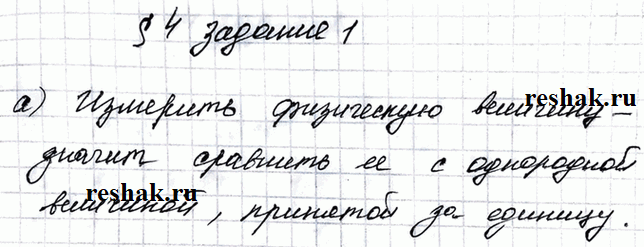 § 4 задание 1
а) Измерить физическую величину –
значит сравнить ее с однородной
величиной, принятой за единицу.
reshak.ru
reshak.ru